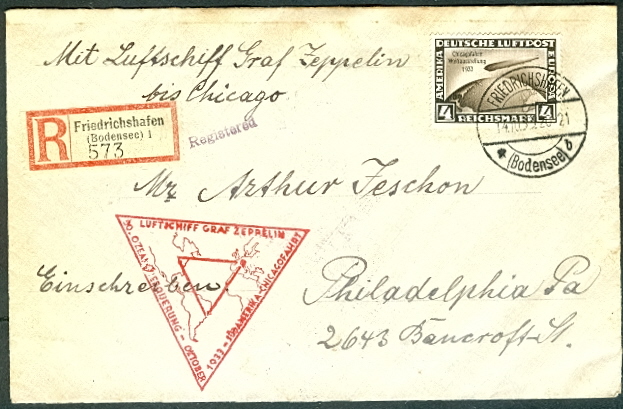 Mit Luftschiff Graf Zeppelin
bis Chicago
DEUTSCHE LUFTPOST
AMERIKA
EUROPA
Chicagofahrt
Weltausstellung
1933
4 REICHSMARK 4
FRIEDRICHSHAFEN
(Bodensee) b
R
Friedrichshafen
(Bodensee) 1
573
Registered
Mr Arthur Jeschon
LUFTSCHIFF GRAF ZEPPELIN
OKTOBER
1933 - SÜDAMERIKA-CHICAGOFAHRT
Einschreiben.
Philadelphia Pa
2643 Bancroft-St.